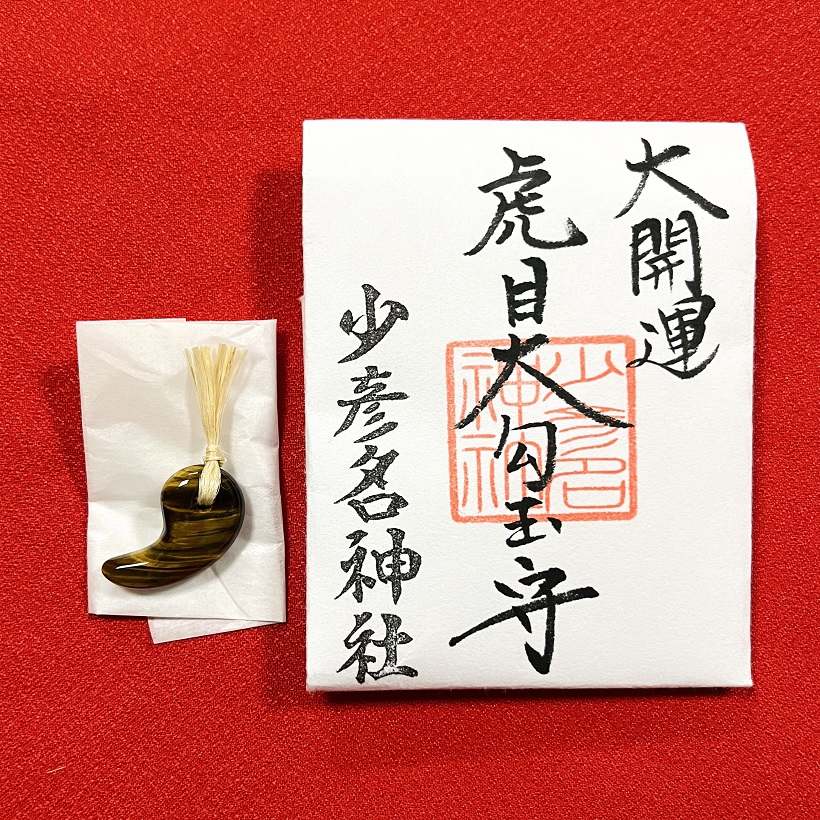 大開運
虎目大勾玉守
少彦名神社
少彦名
神社